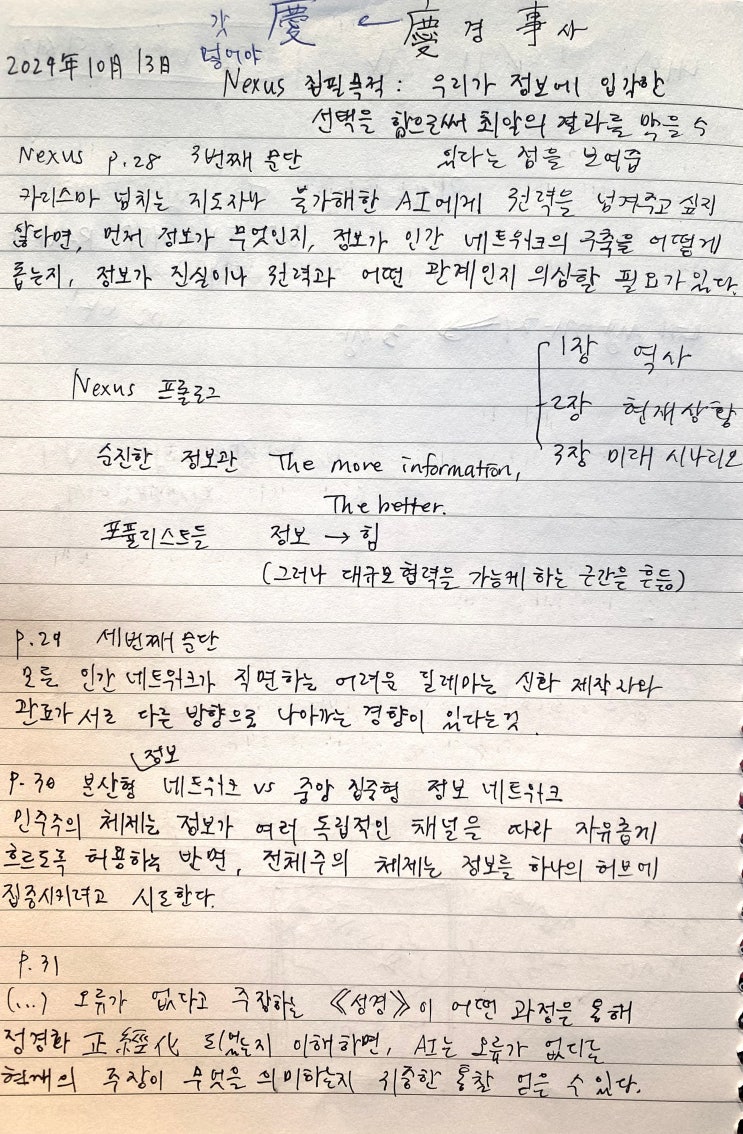 각 慶 ← 慶 경 事 사
떨어야
2024年 10月 13日
Nexus 집필목적 : 우리가 정보에 입각한
선택을 함으로써 최악의 결과를 막을 수
Nexus p.28 3번째 문단 있다는 점을 보여줌
카리스마 넘치는 지도자나 불가해한 AI에게 권력을 넘겨주고 싶지
않다면, 먼저 정보가 무엇인지, 정보가 인간 네트워크의 구축을 어떻게
돕는지, 정보가 진실이나 권력과 어떤 관계인지 의심할 필요가 있다.
1장 역사
Nexus 프롤로그
2장 현재상황
순진한 정보관 The more information,
3장 미래 시나리오
The better.
포퓰리스트들 정보 → 힘
(그러나 대규모 협력을 가능케 하는 근간을 흔듦)
p.29 세번째 문단
모든 인간 네트워크가 직면하는 어려운 딜레마는 신화 제작자와
관료가 서로 다른 방향으로 나아가는 경향이 있다는 것.
정보
p.30 분산형 네트워크 vs 중앙 집중형 정보 네트워크
민주주의 체제는 정보가 여러 독립적인 채널을 따라 자유롭게
흐르도록 허용하는 반면, 전체주의 체제는 정보를 하나의 허브에
집중시키려고 시도한다.
p.31
(...) 오류가 없다고 주장하는 《성경》이 어떤 과정을 통해
정경화 正經化 되었는지 이해하면, AI는 오류가 없다는
현재의 주장이 무엇을 의미하는지 귀중한 통찰 얻을 수 있다.